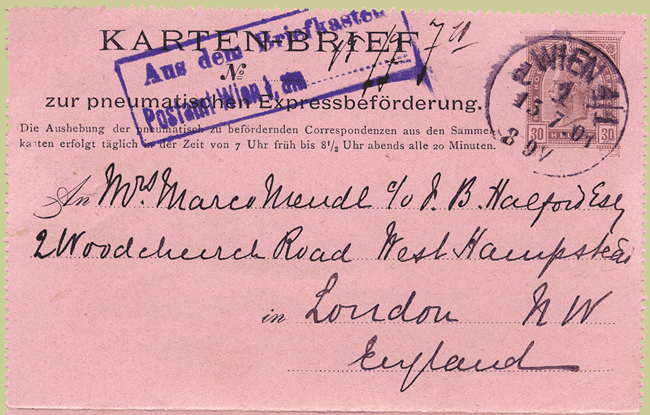 KARTEN-BRIEF
Aus dem Briefkasten
Postamt Wien 1, am
No
7 11
zur pneumatischen Expressbeförderung.
Die Aushebung der pneumatisch zu befördernden Correspondenzen aus den Sammel-
karten erfolgt täglich in der Zeit von 7 Uhr früh bis 8½ Uhr abends alle 20 Minuten.
WIEN 1/1
15 7 01
8 9V
30 30
An Mrs Marco Mendl c/o J. B. Halford Esq
2 Woodchurch Road West Hampstead
in London N W
England